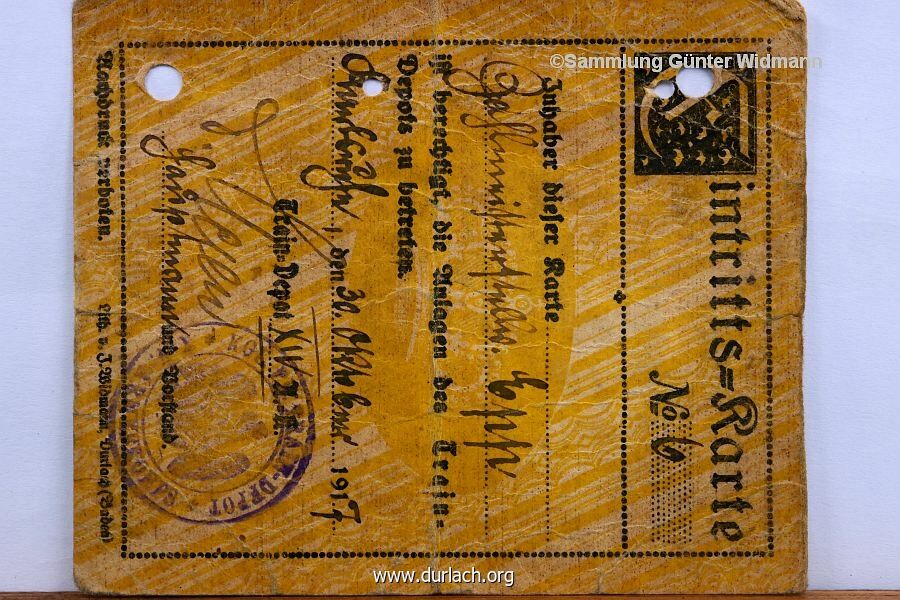 ©Sammlung Günter Widmann
Eintritts=Karte
No. 6
Inhaber dieser Karte
Epp
ist berechtigt, die Anlagen des Train=
Depots zu betreten.
Durlach, den 30. Oktober 1917.
Train=Depot XIV. A.K.
Hauptmann und Vorstand.
Nachdruck verboten.
Lith. v. J. Widmann, Durlach (Baden)
DEPOT
www.durlach.org